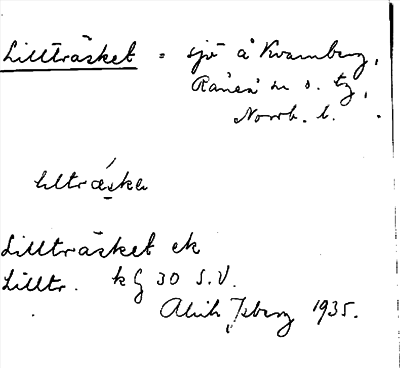 Lillträsket = sjö å Kvarnberg,
Råneå sn o. tg,
Norrb. l.
lıltræ̱ska
Lillträsket ek
Lilltr. kG 30 S.V.
Alrik Isberg 1935.